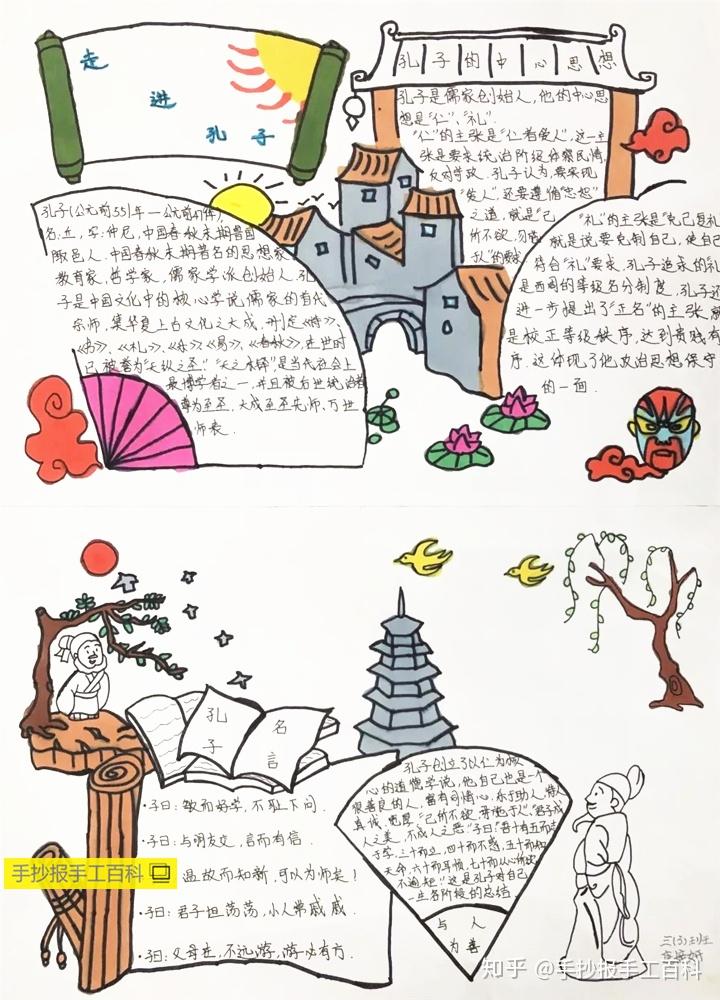 走
进
孔子
孔子的中心思想
孔子是儒家创始人,他的中心思
想是“仁”、“礼”。
“仁”的主张是“仁者爱人”,这一主
张是要求统治阶级体察民情,
反对苛政。孔子认为要实现
“爱人”还要遵循“忠恕”
之道,就是“己
所不欲,勿施
于人”的要求
“礼”的主张是“克己复礼
就是说要克制自己,使自己
符合“礼”要求。孔子追求的礼
是西周的等级名分制度。孔子还
进一步提出了“正名”的主张,就
是校正等级秩序,达到贵贱有
序。这体现了他政治思想保守
的一面.
孔子(公元前551年—公元前479年)
名:丘,字:仲尼,中国春秋末期鲁国
陬邑人.中国春秋末期著名的思想家
教育家,哲学家,儒家学派创始人.孔
子是中国文化中的核心学说,儒家的有代
宗师,集华夏上古文化之大成,删定《诗》、
《书》、《礼》、《乐》《易》、《春秋》,在世时
已被誉为“天纵之圣”“天之木铎”,是当代社会上
最博学者之一,并且被后世统治者
尊为至圣,大成至圣先师、万世
师表.
孔子
名言
·子曰:敏而好学,不耻下问.
·子曰:与朋友交,言而有信.
温故而知新,可以为师矣!
·子曰:君子坦荡荡,小人常戚戚.
·子曰:父母在,不远游,游必有方.
孔子创立了以仁为核
心的道德学说,他自己也是一个
很善良的人,富有同情心,乐于助人,待人
真诚、宽厚.“己所不欲,勿施于人”、“君子成
人之美,不成人之恶.”子曰:“吾十有五而志
于学,三十而立,四十而不惑,五十而知
天命,六十而耳顺,七十而从心所欲
不逾矩.”这是孔子对自己
一生各阶段的总结.
与人
为善
三(3)班
手抄报手工百科
知乎 @手抄报手工百科